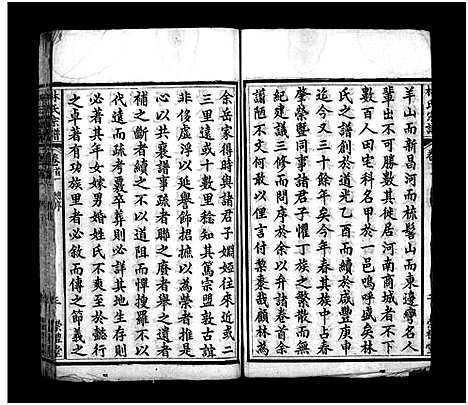 林氏宗譜
羊山而新昌河而梳髻山而東邊彎名人
輩出不可勝數其徙居河南商城者不下
數百人田宅科名甲於一邑嗚呼盛矣林
氏之譜創於道光乙酉而續於咸豐庚申
迄今又三十餘年矣今年春其族太學生
肇榮暨同事諸君子懼丁族之繁散而無
紀建議三修而問序於余以弁諸卷首余
謭陋不文何敢言付棃棗哉我觀林為
余岳家得時與諸君子姻婭往來近或二
三里遠或十數里稔知其篤宗盟敦古誼
非侈虛浮以延譽飾絺以為榮者惟是
以之共襄譜事疏者聯之廢者舉之遺者
補之斷者續之不以道阻而憚搜羅不以
代遠而疏考覈卒葬則必詳其地生存則
必著其年女嫁男婚姓氏不至於或懿行
之卓著有功族里者必敘而傳之節義之
林氏宗譜
卷首